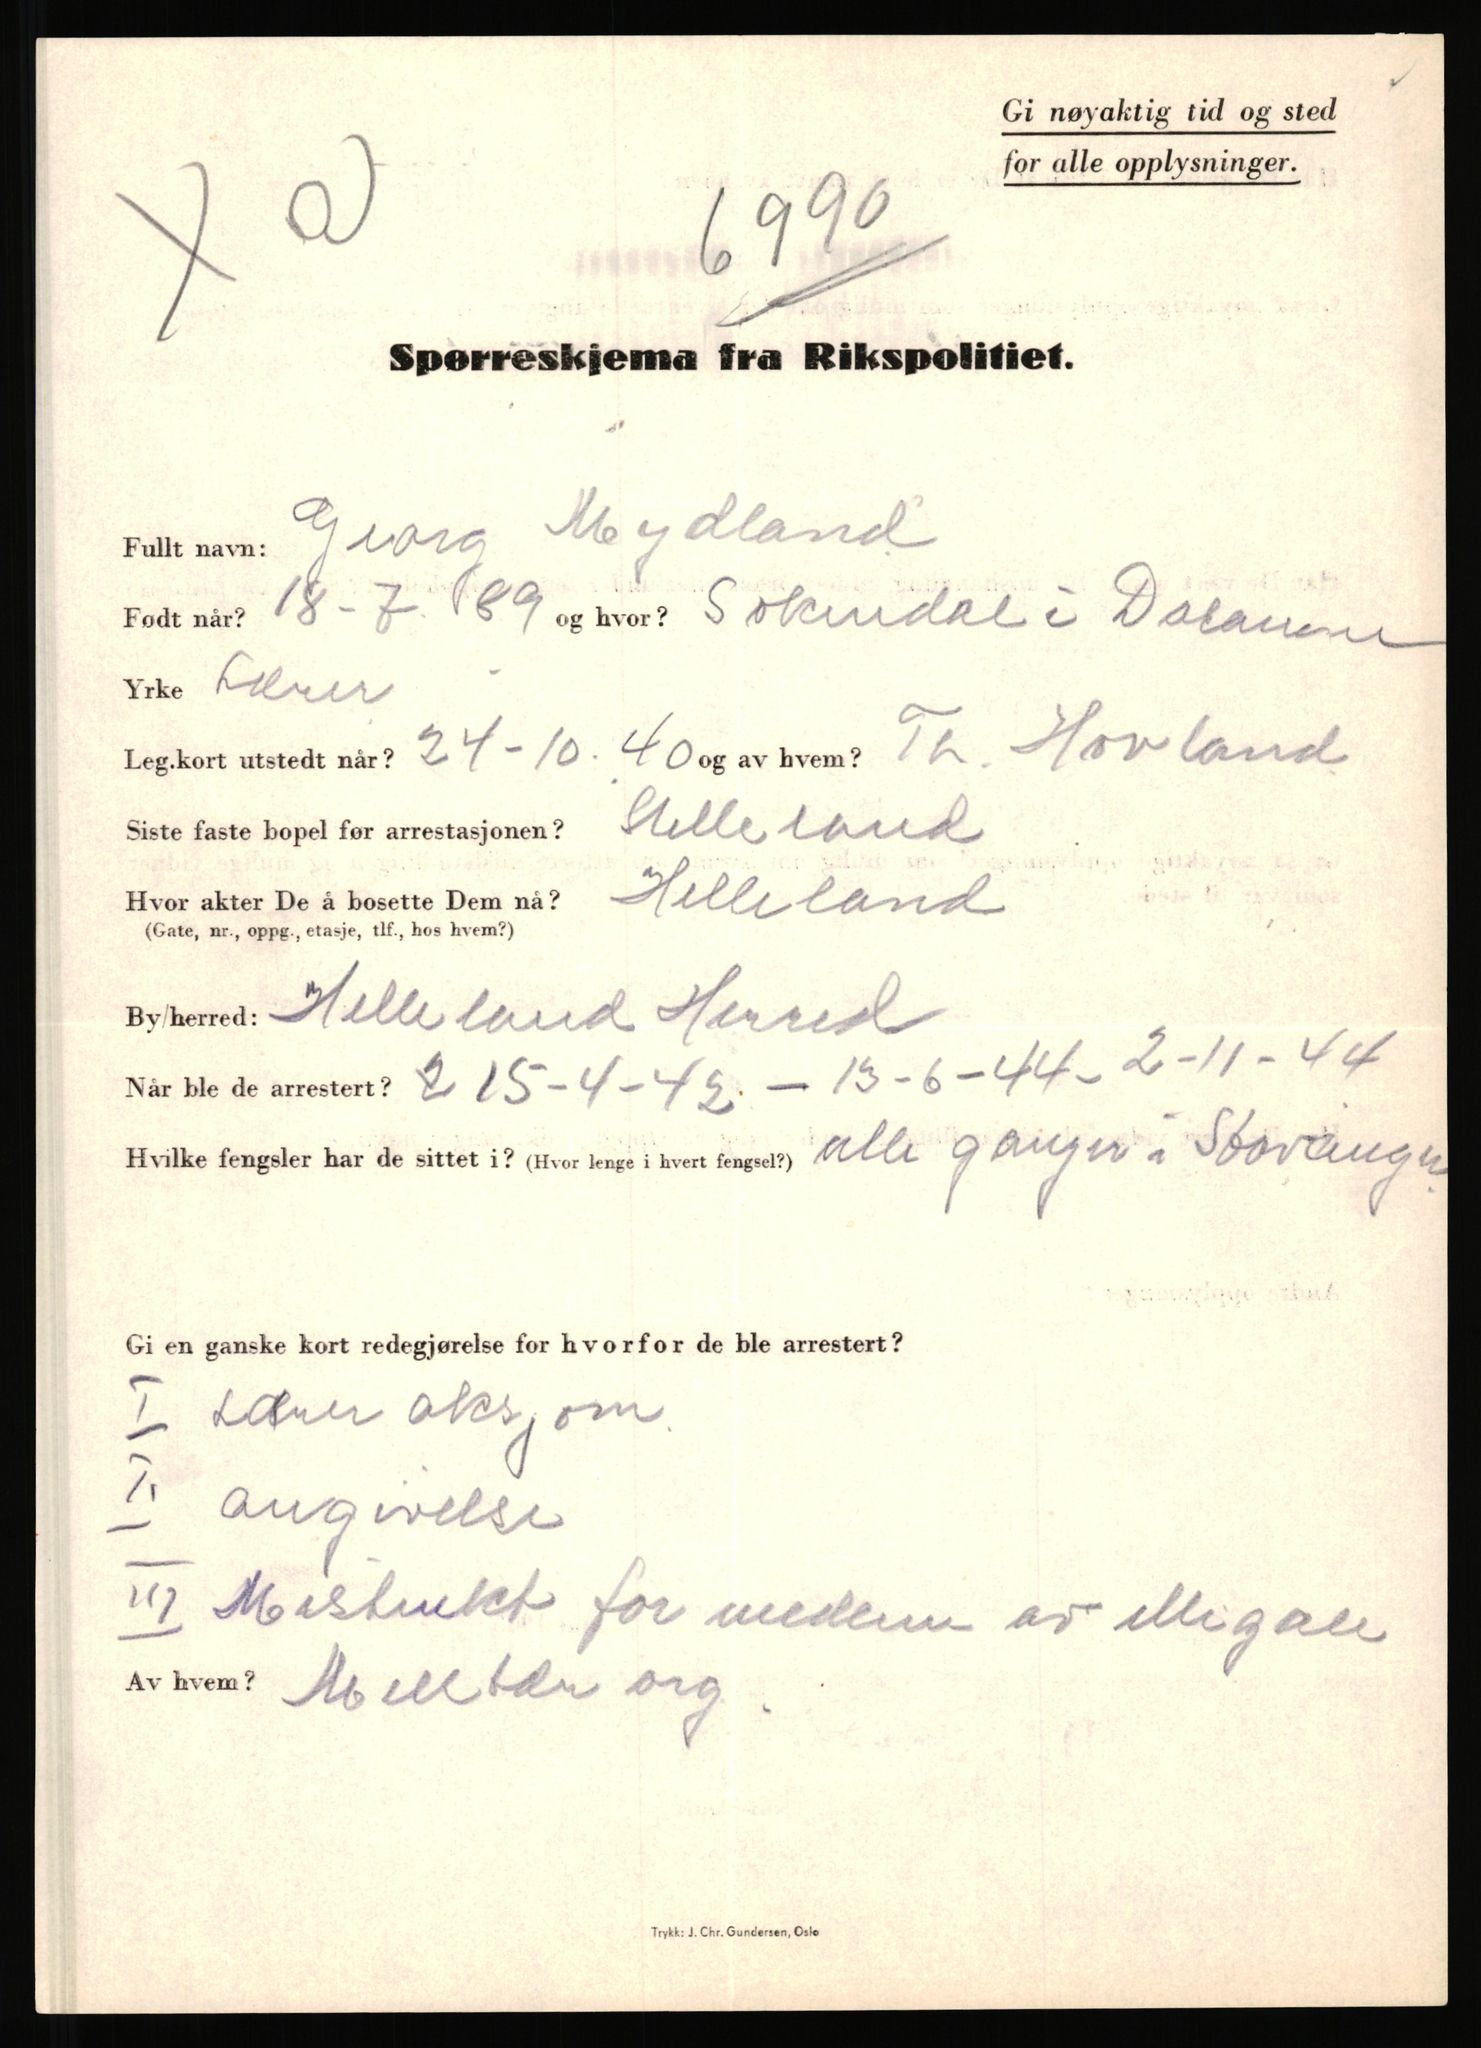 Gi nøyaktig tid og sted
for alle opplysninger.
X a
6990
Spørreskjema fra Rikspolitiet.
Fullt navn: Georg Mydland
Født når? 18-7-89 og hvor? Sokndal i Dalanne
Yrke Lærer
Leg.kort utstedt når? 24-10.40 og av hvem? Th. Hovland
Siste faste bopel før arrestasjonen? Helleland
Hvor akter De å bosette Dem nå? Helleland
(Gate, nr., oppg., etasje, tlf., hos hvem?)
By/herred: Helleland Herred
Når ble de arrestert? 15-4-42. - 13-6-44 - 2-11-44
Hvilke fengsler har de sittet i? (Hvor lenge i hvert fengsel?) alle ganger i Stavanger
Gi en ganske kort redegjørelse for hvorfor de ble arrestert?
I Lærer aksjom
II angivelse
III Mistenkt for medlem av illegale
Av hvem? Militær org.
Trykk: J. Chr. Gundersen, Oslo